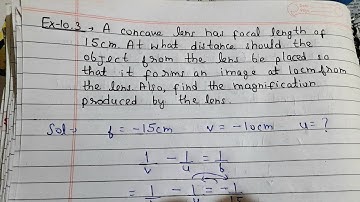 Ex-10.3 → A concave lens has focal length of
15cm. At what distance should the
object from the lens be placed so
that it forms an image at 10cm from
the lens. Also, find the magnification
produced by the lens.
Sol → f = -15cm v = -10cm u = ?
1/v - 1/u = 1/f